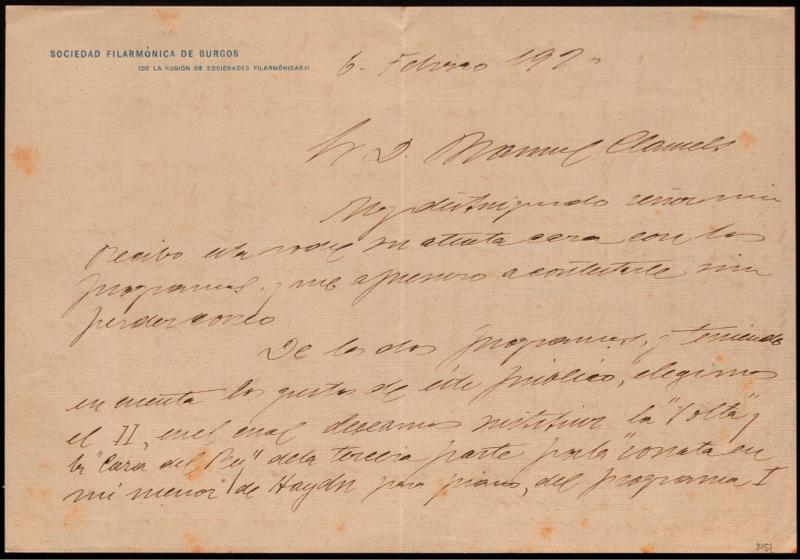 SOCIEDAD FILARMÓNICA DE BURGOS
(DE LA UNIÓN DE SOCIEDADES FILARMÓNICAS)
6 - Febrero 192
Sr D. Manuel Clausells
Muy distinguido señor mio
Recibo esta noche su atenta carta con los
programas, y me apresuro a contestarle sin
perder correo
De los dos programas, y teniendo
en cuenta los gustos de éste público, elegimos
el II, en el cual deseamos sustituir la "Volta" y
la "Caza del Rey" de la tercera parte por la "sonata en
mi menor" de Haydn para piano, del programa I
8151